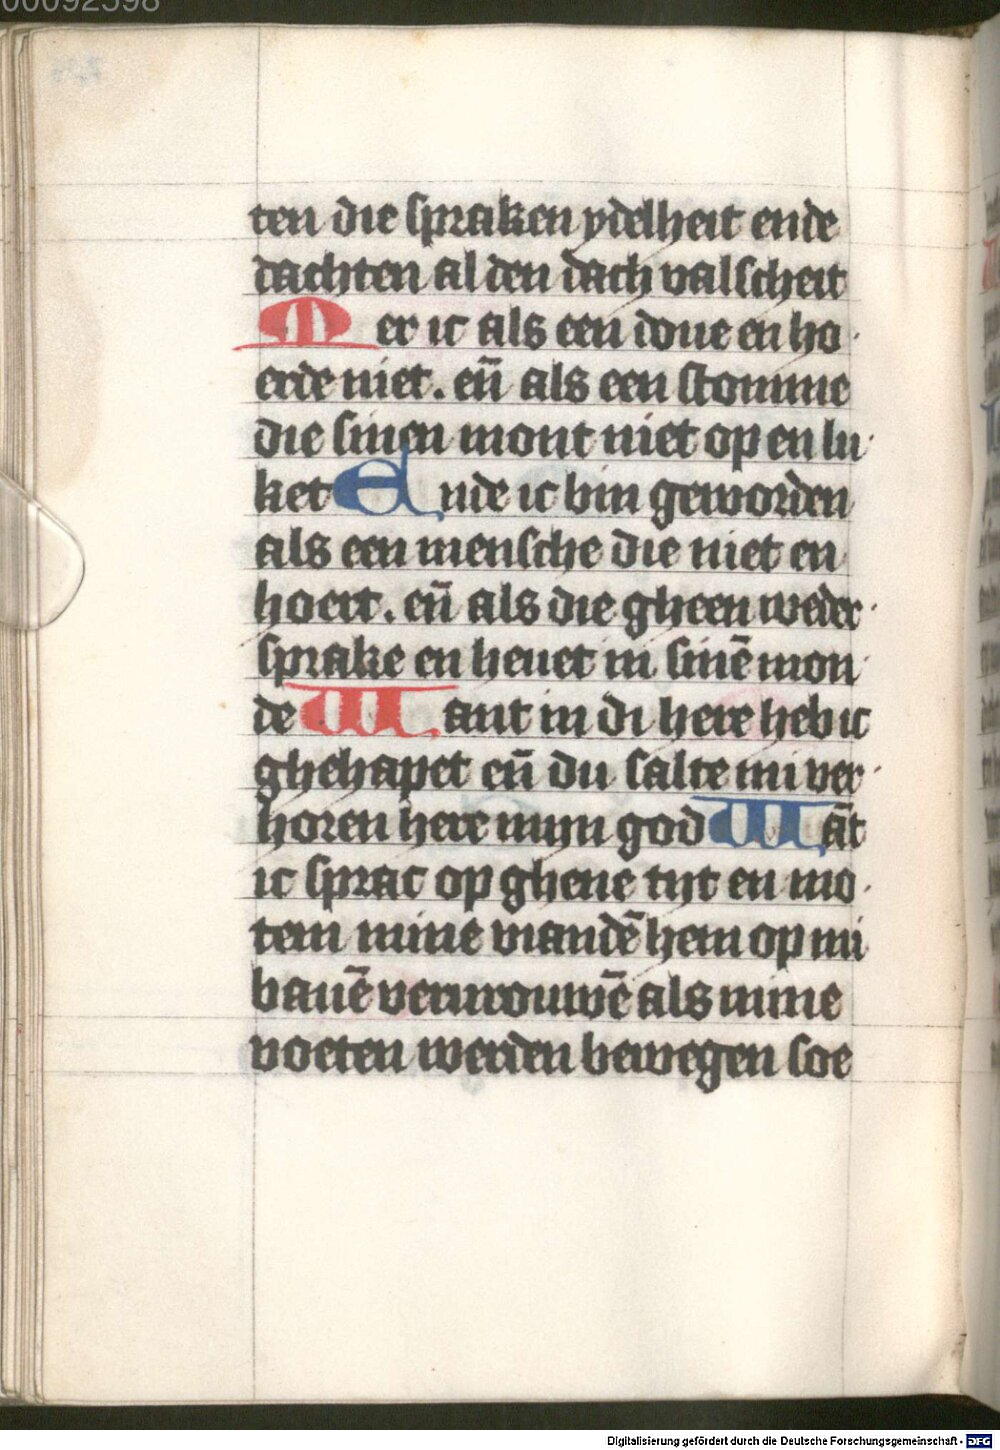 00092598
ten die spraken ydelheit ende
dachten al den dach valscheit
Mer ic als een doue en ho
erde niet. eñ als een stomme
die sinen mont niet op en lu
ket Ende ic bin geworden
als een mensche die niet en
hoert. eñ als die gheen weder
sprake en heuet in sinē mon
de Want in di here heb ic
ghehapet eñ du salte mi ver
horen here mijn god Wāt
ic sprac op ghene tijt en mo
tem mine viandē hem op mi
bauē vervrouwē als mine
voeten werden bewegen soe
Digitalisierung gefördert durch die Deutsche Forschungsgemeinschaft - DFG